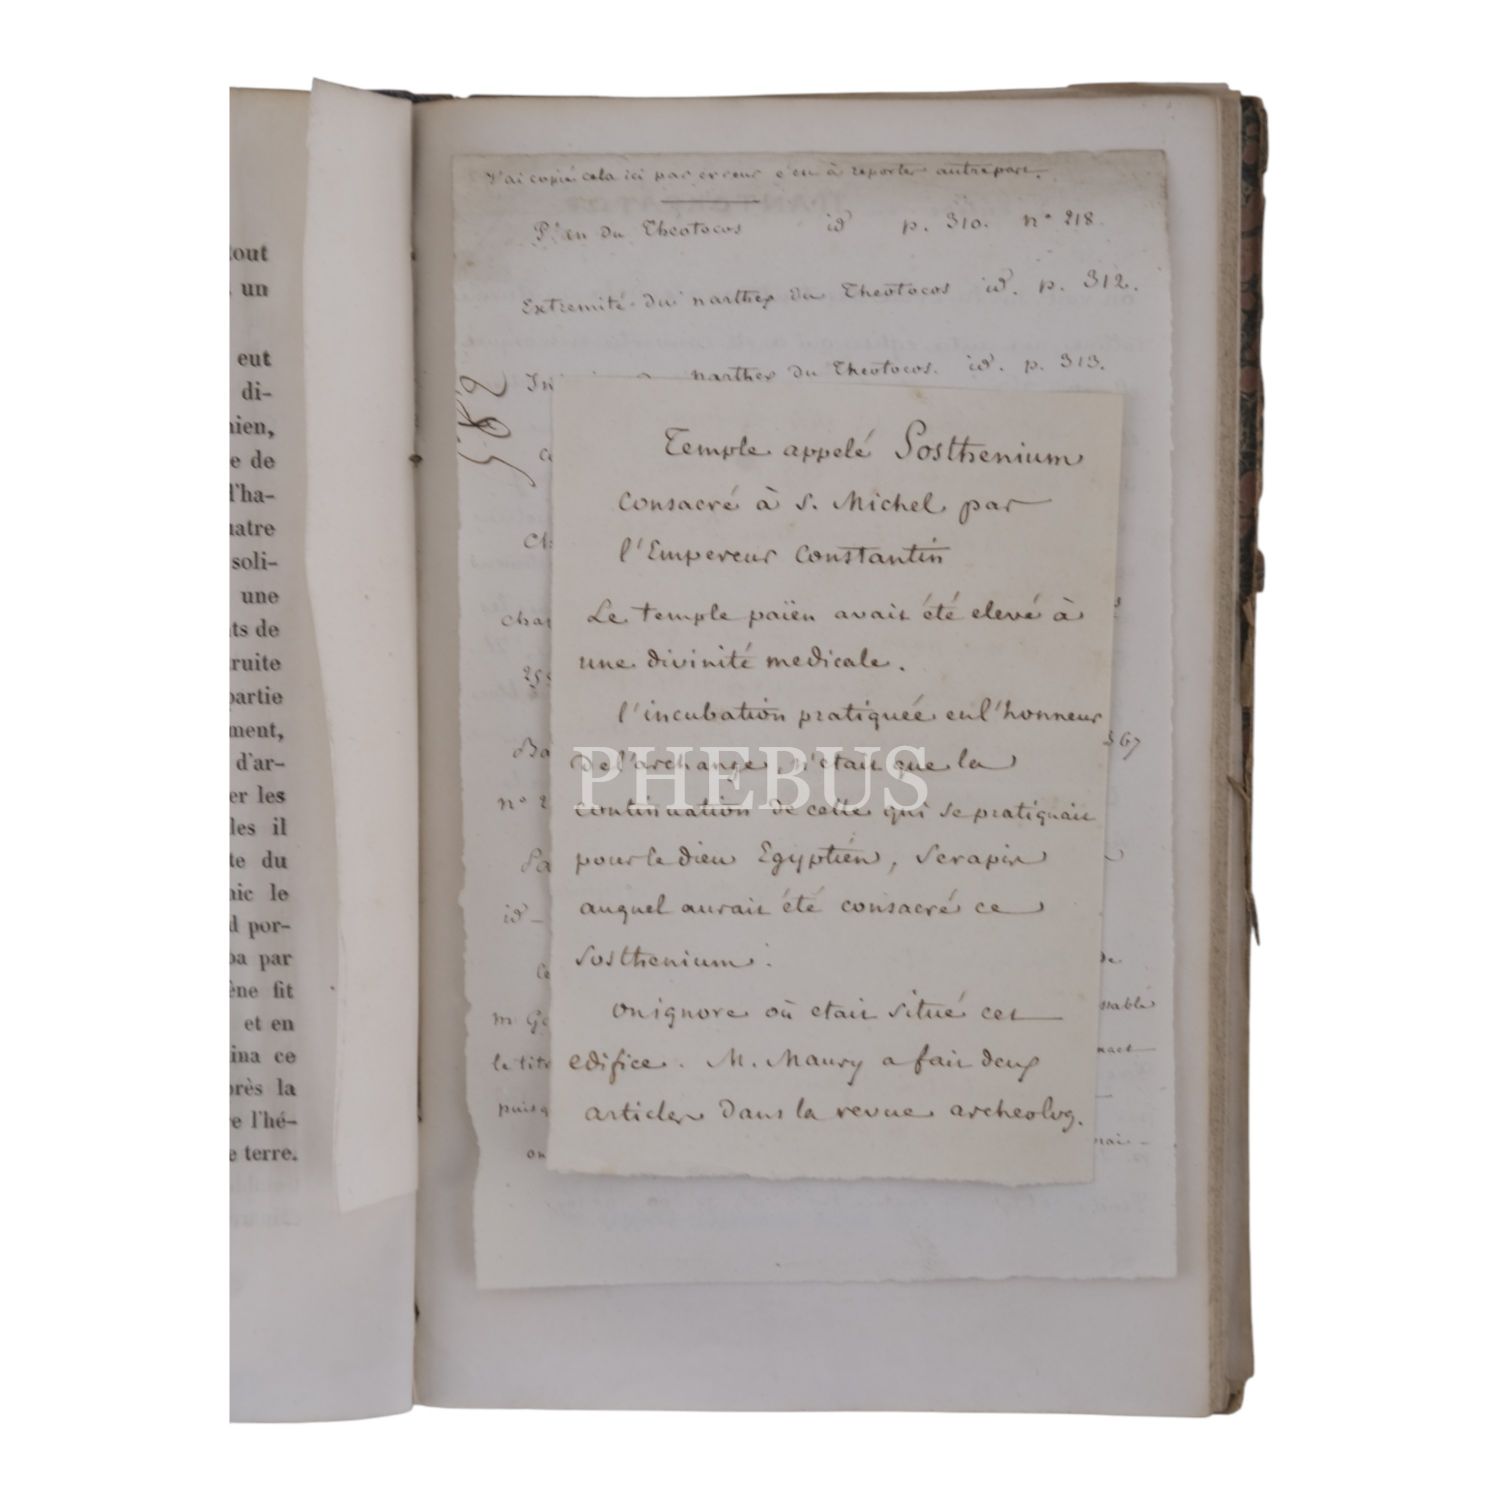 tout
un
eut
di-
nien,
e de
l'ha-
uatre
soli-
une
ts de
ruite
partie
ment,
d'ar-
er les
les il
te du
nic le
d por-
pa par
ène fit
et en
ina ce
près la
re l'hé-
e terre.
J'ai copié cela ici par erreur c'en à reporter autrepart.
Plan du Theotocos id p. 310. n° 218.
Extremité du narthex du Theotocos id. p. 312.
narthex du Theotocos. id. p. 313.
582
Temple appelé Sosthenium
consacré à S. Michel par
l'Empereur Constantin
Le temple païen avait été elevé à
une divinité medicale.
l'incubation pratiquée en l'honneur
de l'archange, n'etait que la
continuation de celle qui se pratiquait
pour le dieu Egyptien, Serapis
auquel aurait été consacré ce
Sosthenium.
On ignore où etait situé cet
edifice. M. Maury a fait deux
articles dans la revue archeolog.
char
367
n° 2
id -
de
m Ge
le titr
puisq
on
PHEBUS